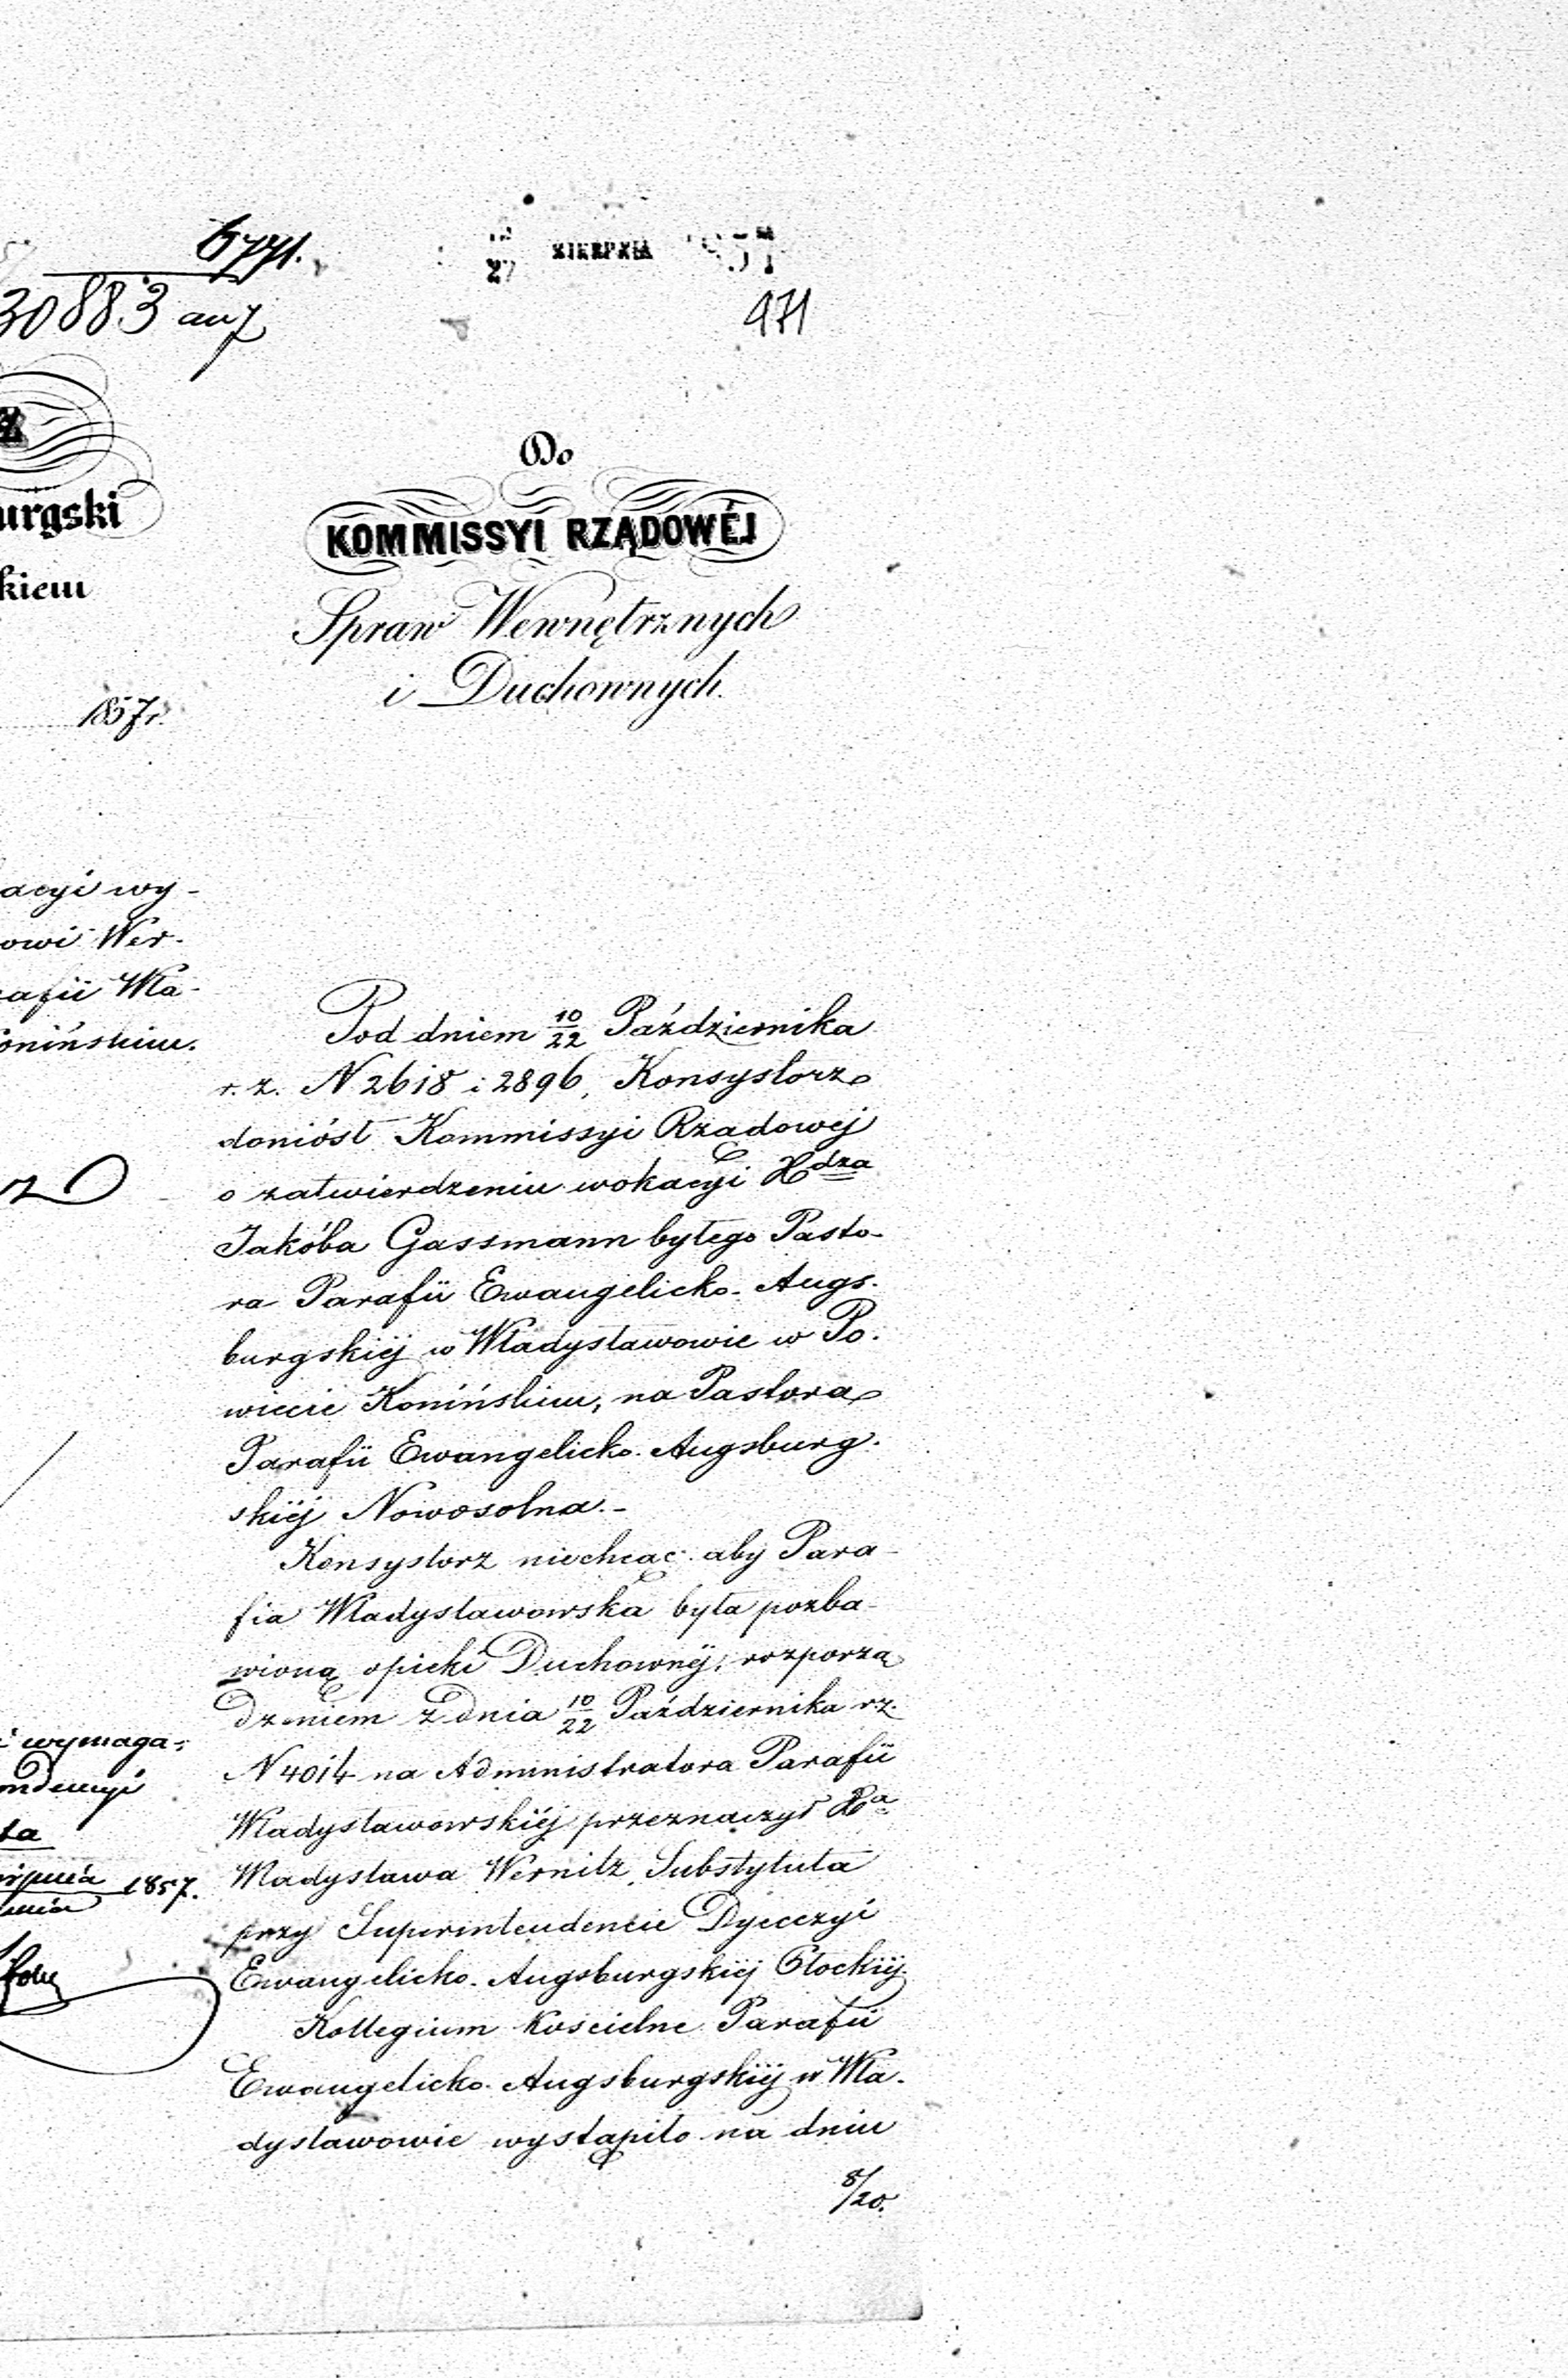 6771.
30883 au7
SIERPNIA
971
Do
KOMMISSYI RZĄDOWÉJ
Spraw Wewnętrznych
i Duchownych.
urgski
kiem
1857r.
acyi wy-
owi Wer-
afii Wła-
onińskim.
Pod dniem 10/22 Października
r. z. N 2618 i 2896, Konsystorz
doniósł Kommissyi Rządowej
o zatwierdzeniu wokacyi Xdza
Jakóba Gassmann byłego Pasto-
ra Parafii Ewangelicko-Augs-
burgskiéj w Władysławowie w Po-
wiecie Konińskim, na Pastora
Parafii Ewangelicko-Augsburg-
skiéj Nowosolna.-
Konsystorz niechcąc aby Para-
fia Władysławowska była pozba-
wioną opieki Duchownéj, rozporzą
dzeniem z dnia 10/22 Października r.z.
N 4014 na Administratora Parafii
Władysławowskiéj przeznaczył Xa
Władysława Wernitz, Substytuta
przy Superintendencie Dyecezyi
Ewangelicko-Augsburgskiéj Płockiéj.
Kollegium Kościelne Parafii
Ewangelicko-Augsburgskiéj w Wła-
dysławowie wystąpiło na dniu
8/20.
wymaga-
ta
1857.